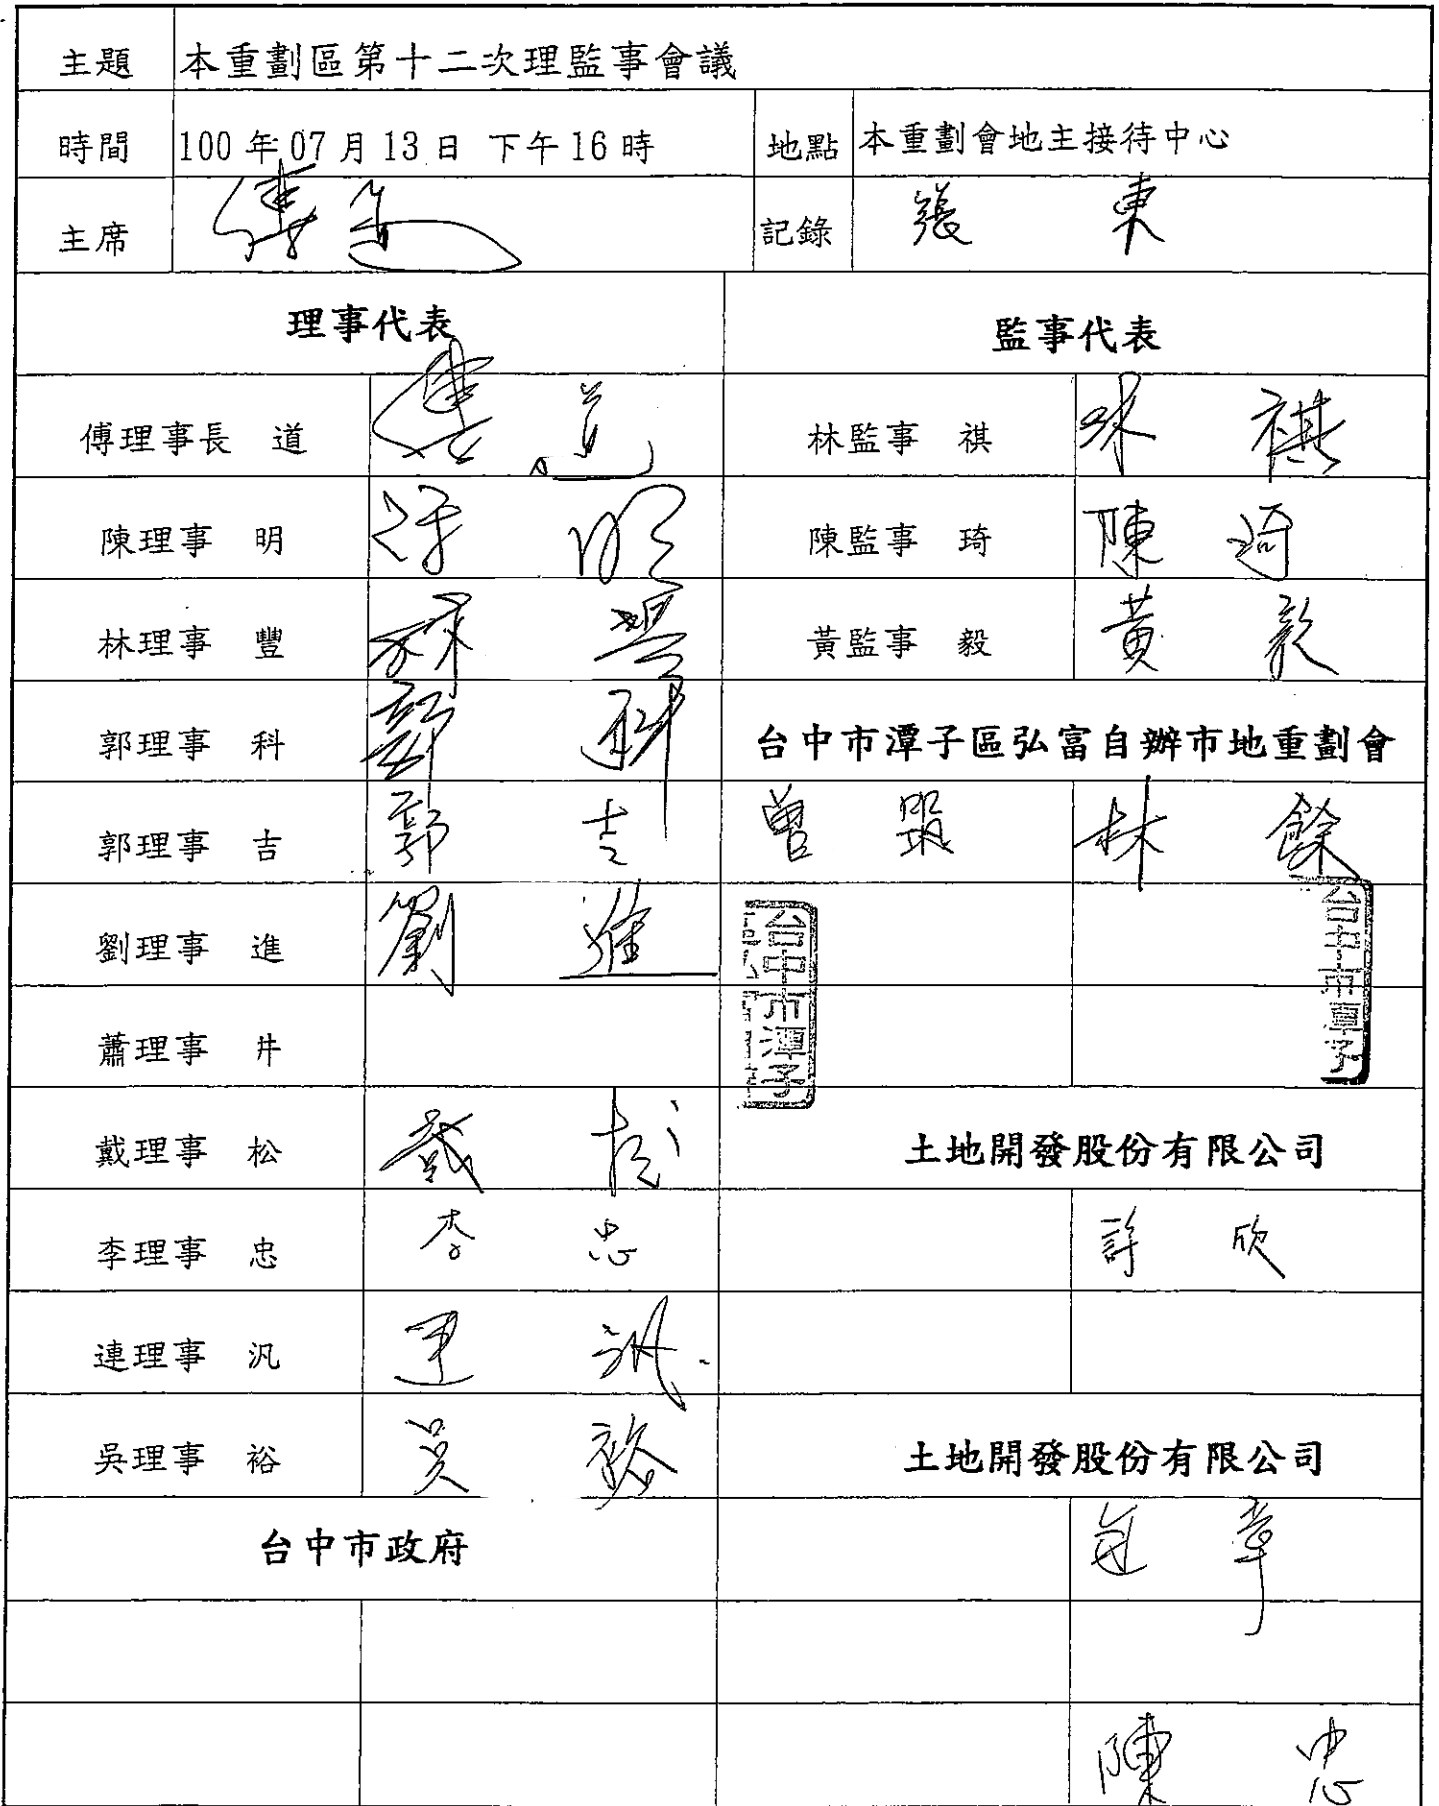 主題 本重劃區第十二次理監事會議
時間 100年07月13日 下午16時 地點 本重劃會地主接待中心
主席 傅 道 記錄 張 東
理事代表 監事代表
傅理事長 道 傅 道 林監事 祺 林 祺
陳理事 明 明 陳監事 琦 陳 琦
林理事 豐 林 豐 黃監事 毅 黃 毅
郭理事 科 郭 科 台中市潭子區弘富自辦市地重劃會
郭理事 吉 郭 吉 曾 林 餘
劉理事 進 劉 進 台中市潭子 台中市潭子
蕭理事 井
戴理事 松 戴 松 土地開發股份有限公司
李理事 忠 李 忠 許 欣
連理事 汎 連 汎
吳理事 裕 吳 裕 土地開發股份有限公司
台中市政府 章
陳 忠